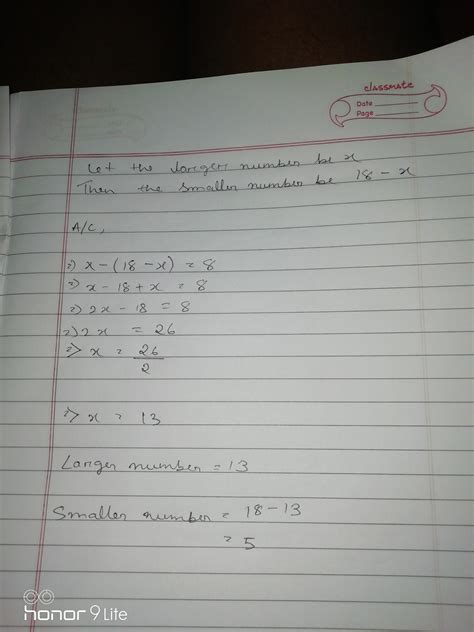 classmate
Date
Page
Let the larger number be x
Then the smaller number be 18 - x
A/C,
=> x - (18 - x) = 8
=> x - 18 + x = 8
=> 2x - 18 = 8
=> 2x = 26
=> x = 26/2
=> x = 13
Larger number = 13
Smaller number = 18 - 13
= 5
honor 9 Lite